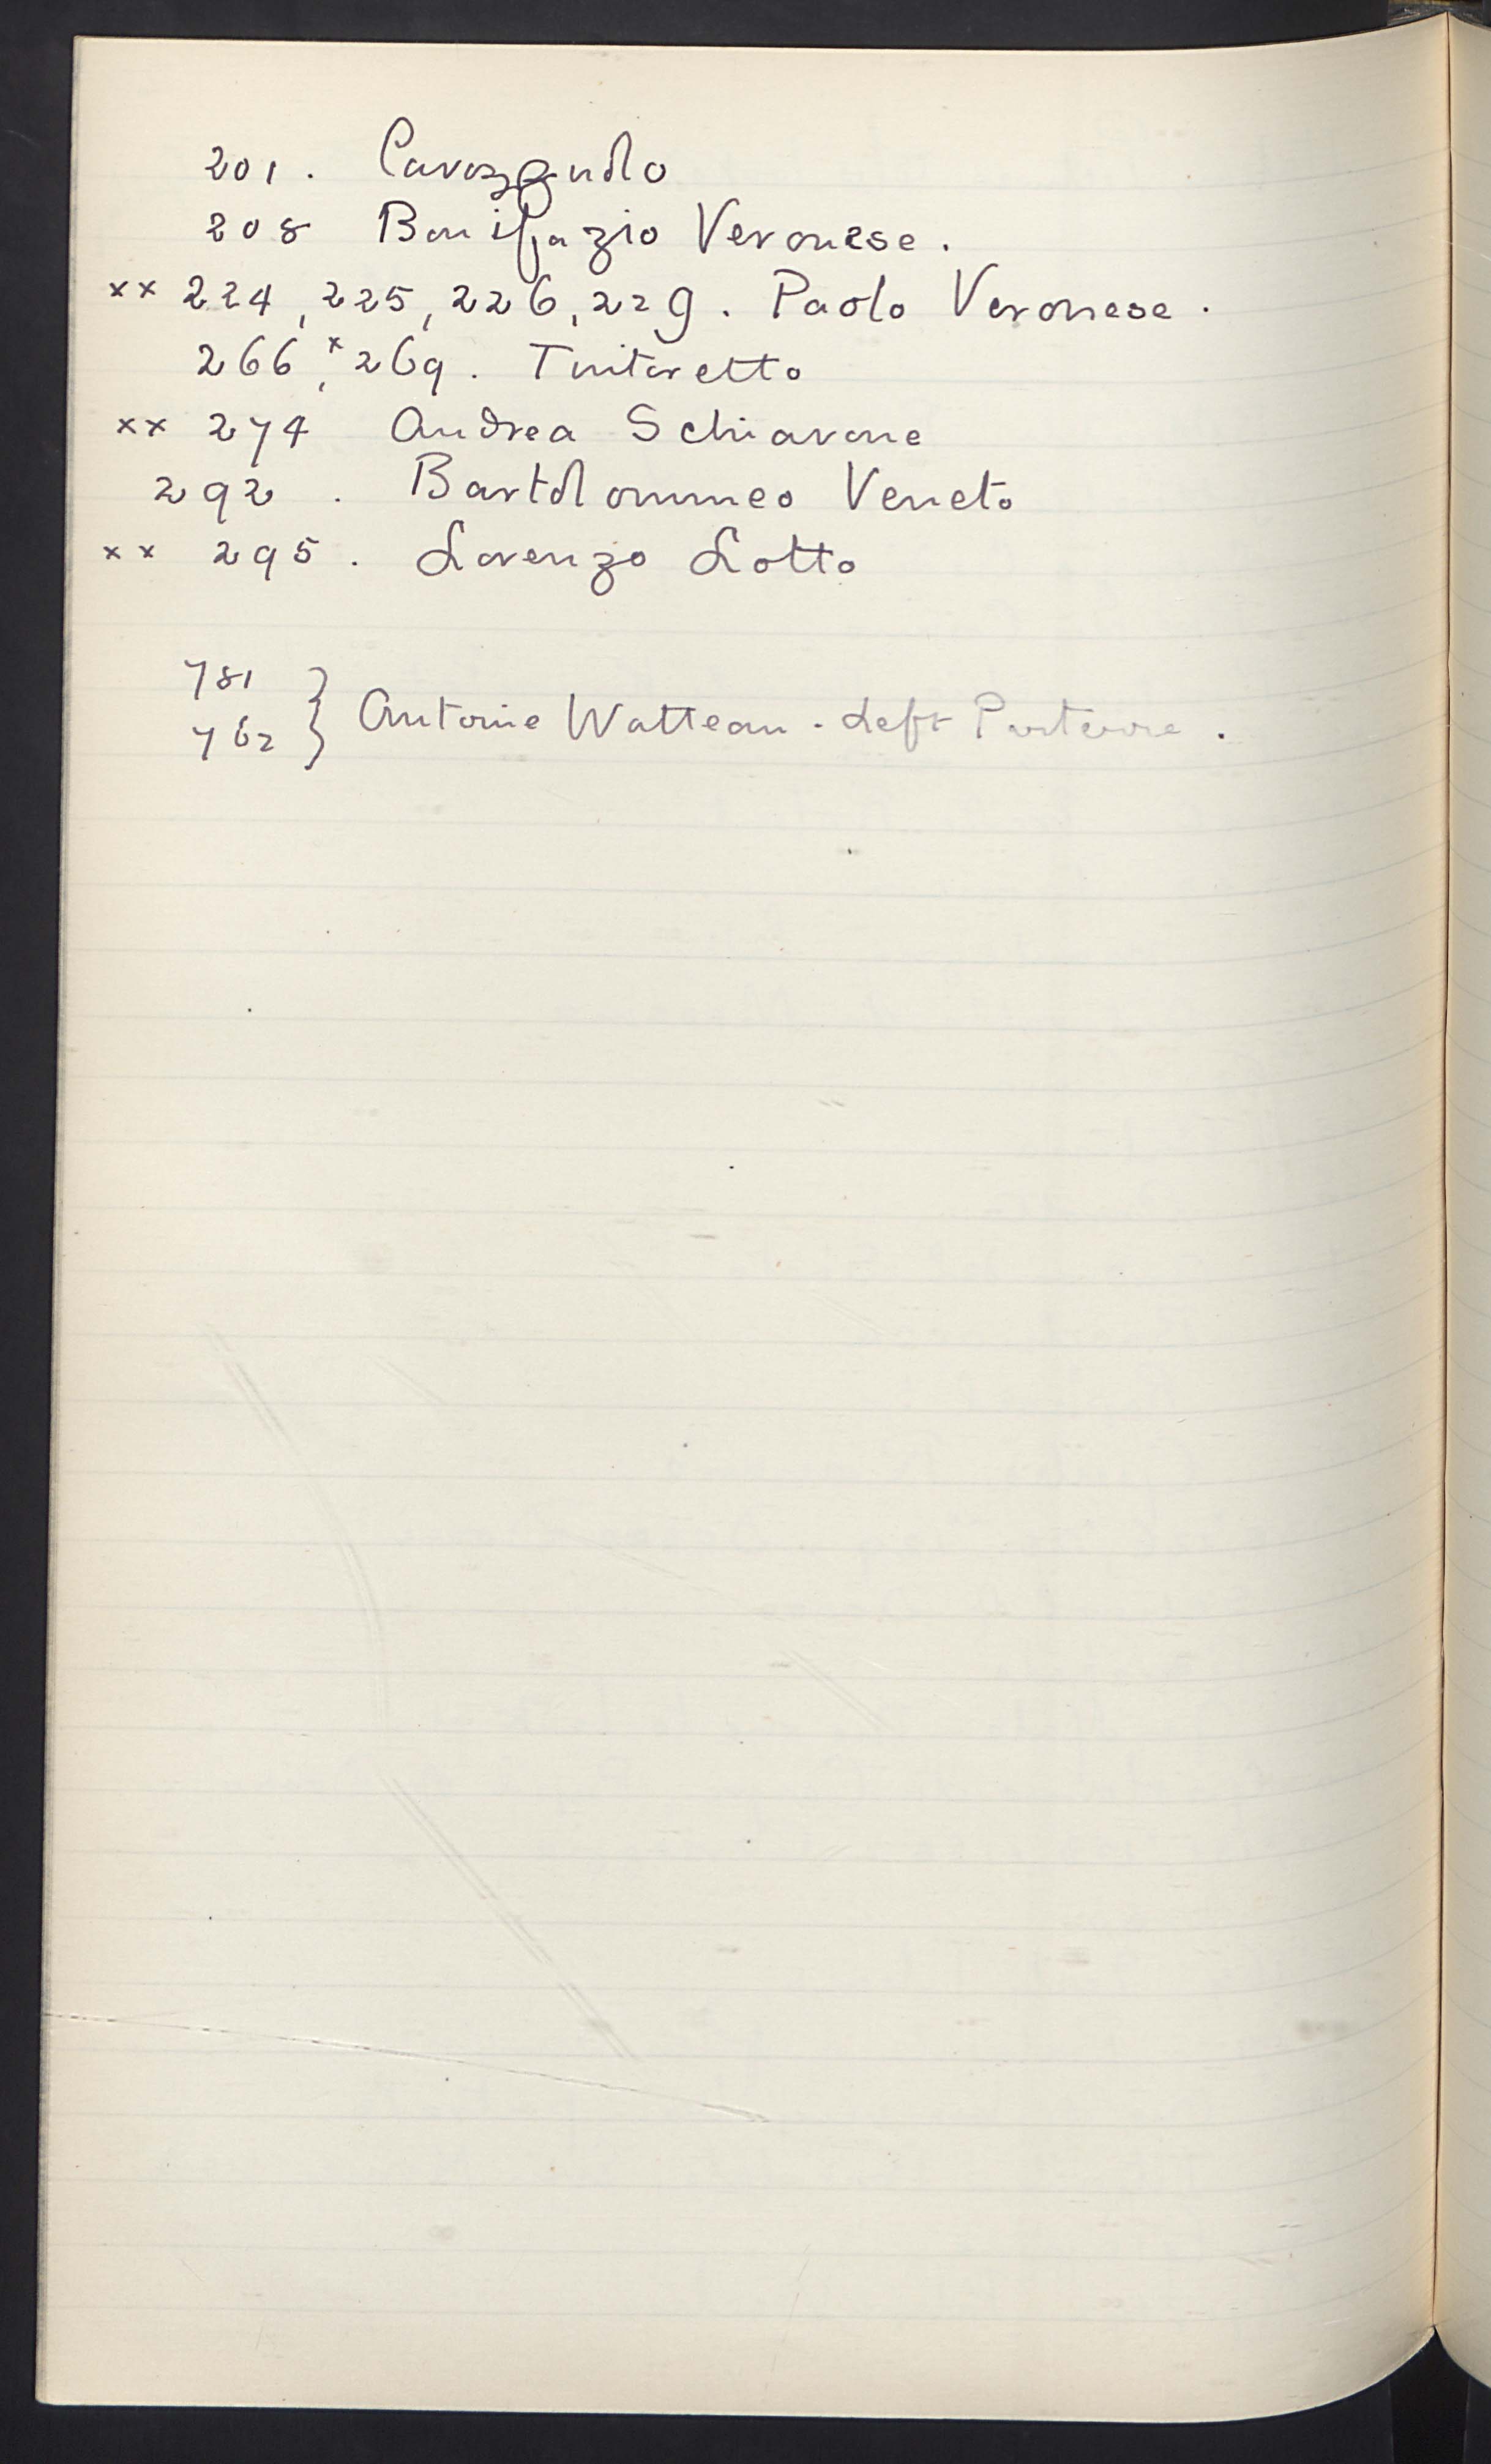 201. Cavazzuolo
208 Bonifazio Veronese.
xx 224, 225, 226, 229. Paolo Veronese.
266, x 269. Tintoretto
xx 274 Andrea Schiavone
292. Bartolommeo Veneto
xx 295. Lorenzo Lotto
781
762 } Antoine Watteau - Left Parterre.